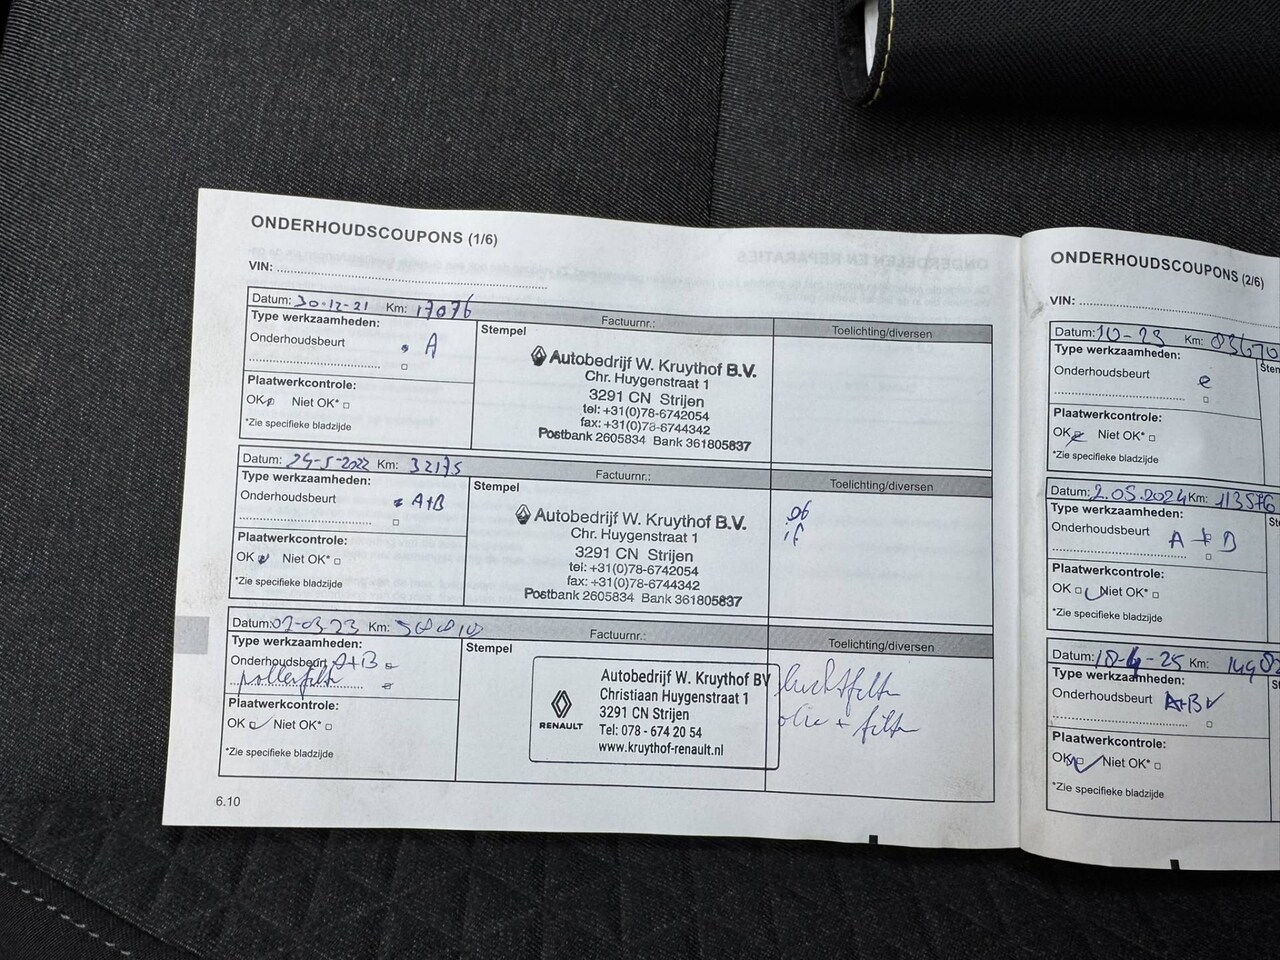 ONDERHOUDSCOUPONS (1/6)
VIN:
Datum: 30-12-21 Km: 17076
Type werkzaamheden:
Onderhoudsbeurt A
Plaatwerkcontrole:
OK Niet OK*
*Zie specifieke bladzijde
Stempel
Factuurnr.:
Toelichting/diversen
Autobedrijf W. Kruythof B.V.
Chr. Huygenstraat 1
3291 CN Strijen
tel: +31(0)78-6742054
fax: +31(0)78-6744342
Postbank 2605834 Bank 361805837
Datum: 24-5-2022 Km: 32175
Type werkzaamheden:
Onderhoudsbeurt A+B
Plaatwerkcontrole:
OK Niet OK*
*Zie specifieke bladzijde
Stempel
Factuurnr.:
Toelichting/diversen
Autobedrijf W. Kruythof B.V.
Chr. Huygenstraat 1
3291 CN Strijen
tel: +31(0)78-6742054
fax: +31(0)78-6744342
Postbank 2605834 Bank 361805837
if
Datum: 02-03-23 Km:
Type werkzaamheden:
Onderhoudsbeurt A+B
pollenfilter
Plaatwerkcontrole:
OK Niet OK*
*Zie specifieke bladzijde
Stempel
Factuurnr.:
Toelichting/diversen
RENAULT
Autobedrijf W. Kruythof BV
Christiaan Huygenstraat 1
3291 CN Strijen
Tel: 078 - 674 20 54
www.kruythof-renault.nl
luchtfilter
olie + filter
6.10
ONDERHOUDSCOUPONS (2/6)
VIN:
Datum: 10-23 Km: 83670
Type werkzaamheden:
Onderhoudsbeurt
Plaatwerkcontrole:
OK Niet OK*
*Zie specifieke bladzijde
Datum: 2.05.2024 Km: 113576
Type werkzaamheden:
Onderhoudsbeurt A+B
Plaatwerkcontrole:
OK Niet OK*
*Zie specifieke bladzijde
Datum: 18-4-25 Km:
Type werkzaamheden:
Onderhoudsbeurt A+B
Plaatwerkcontrole:
OK Niet OK*
*Zie specifieke bladzijde